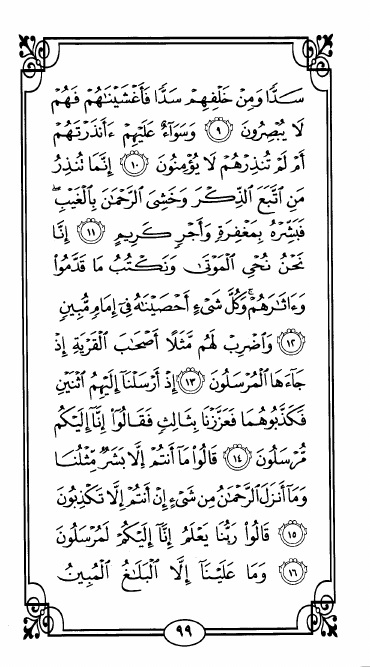 سَدًّا وَمِنْ خَلْفِهِمْ سَدًّا فَأَغْشَيْنَـٰهُمْ فَهُمْ
لَا يُبْصِرُونَ ٩ وَسَوَآءٌ عَلَيْهِمْ ءَأَنذَرْتَهُمْ
أَمْ لَمْ تُنذِرْهُمْ لَا يُؤْمِنُونَ ١٠ إِنَّمَا تُنذِرُ
مَنِ ٱتَّبَعَ ٱلذِّكْرَ وَخَشِيَ ٱلرَّحْمَـٰنَ بِٱلْغَيْبِۖ
فَبَشِّرْهُ بِمَغْفِرَةٍ وَأَجْرٍ كَرِيمٍ ١١ إِنَّا
نَحْنُ نُحْيِ ٱلْمَوْتَىٰ وَنَكْتُبُ مَا قَدَّمُوا۟
وَءَاثَـٰرَهُمْۚ وَكُلَّ شَيْءٍ أَحْصَيْنَـٰهُ فِىٓ إِمَامٍ مُّبِينٍ
١٢ وَٱضْرِبْ لَهُم مَّثَلًا أَصْحَـٰبَ ٱلْقَرْيَةِ إِذْ
جَآءَهَا ٱلْمُرْسَلُونَ ١٣ إِذْ أَرْسَلْنَآ إِلَيْهِمُ ٱثْنَيْنِ
فَكَذَّبُوهُمَا فَعَزَّزْنَا بِثَالِثٍ فَقَالُوٓا۟ إِنَّآ إِلَيْكُم
مُّرْسَلُونَ ١٤ قَالُوا۟ مَآ أَنتُمْ إِلَّا بَشَرٌ مِّثْلُنَا
وَمَآ أَنزَلَ ٱلرَّحْمَـٰنُ مِن شَيْءٍ إِنْ أَنتُمْ إِلَّا تَكْذِبُونَ
١٥ قَالُوا۟ رَبُّنَا يَعْلَمُ إِنَّآ إِلَيْكُمْ لَمُرْسَلُونَ
١٦ وَمَا عَلَيْنَآ إِلَّا ٱلْبَلَـٰغُ ٱلْمُبِينُ
٩٩